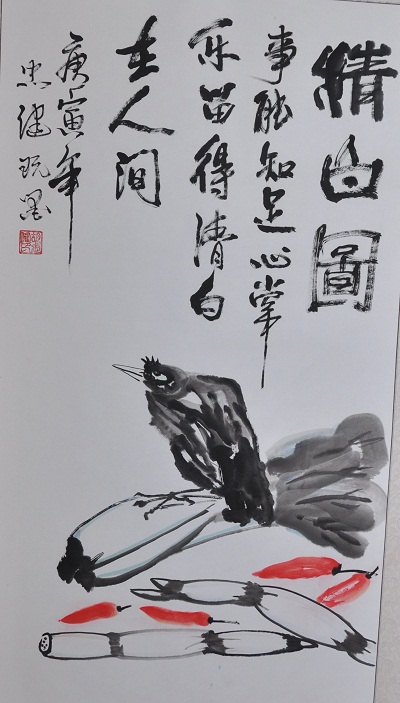 清白圖
事能知足心常
乐留得清白
在人间
庚寅年
忠健玩墨